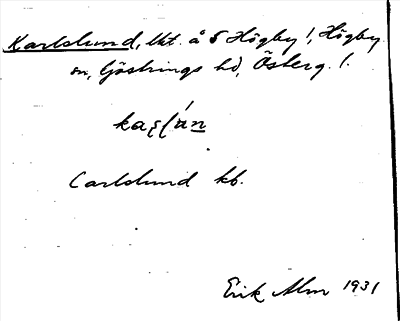 Karlslund, lht. å S Högby !, Högby
sn, Göstrings hd, Österg. l.
Carlslund kb.
Erik Alm 1931